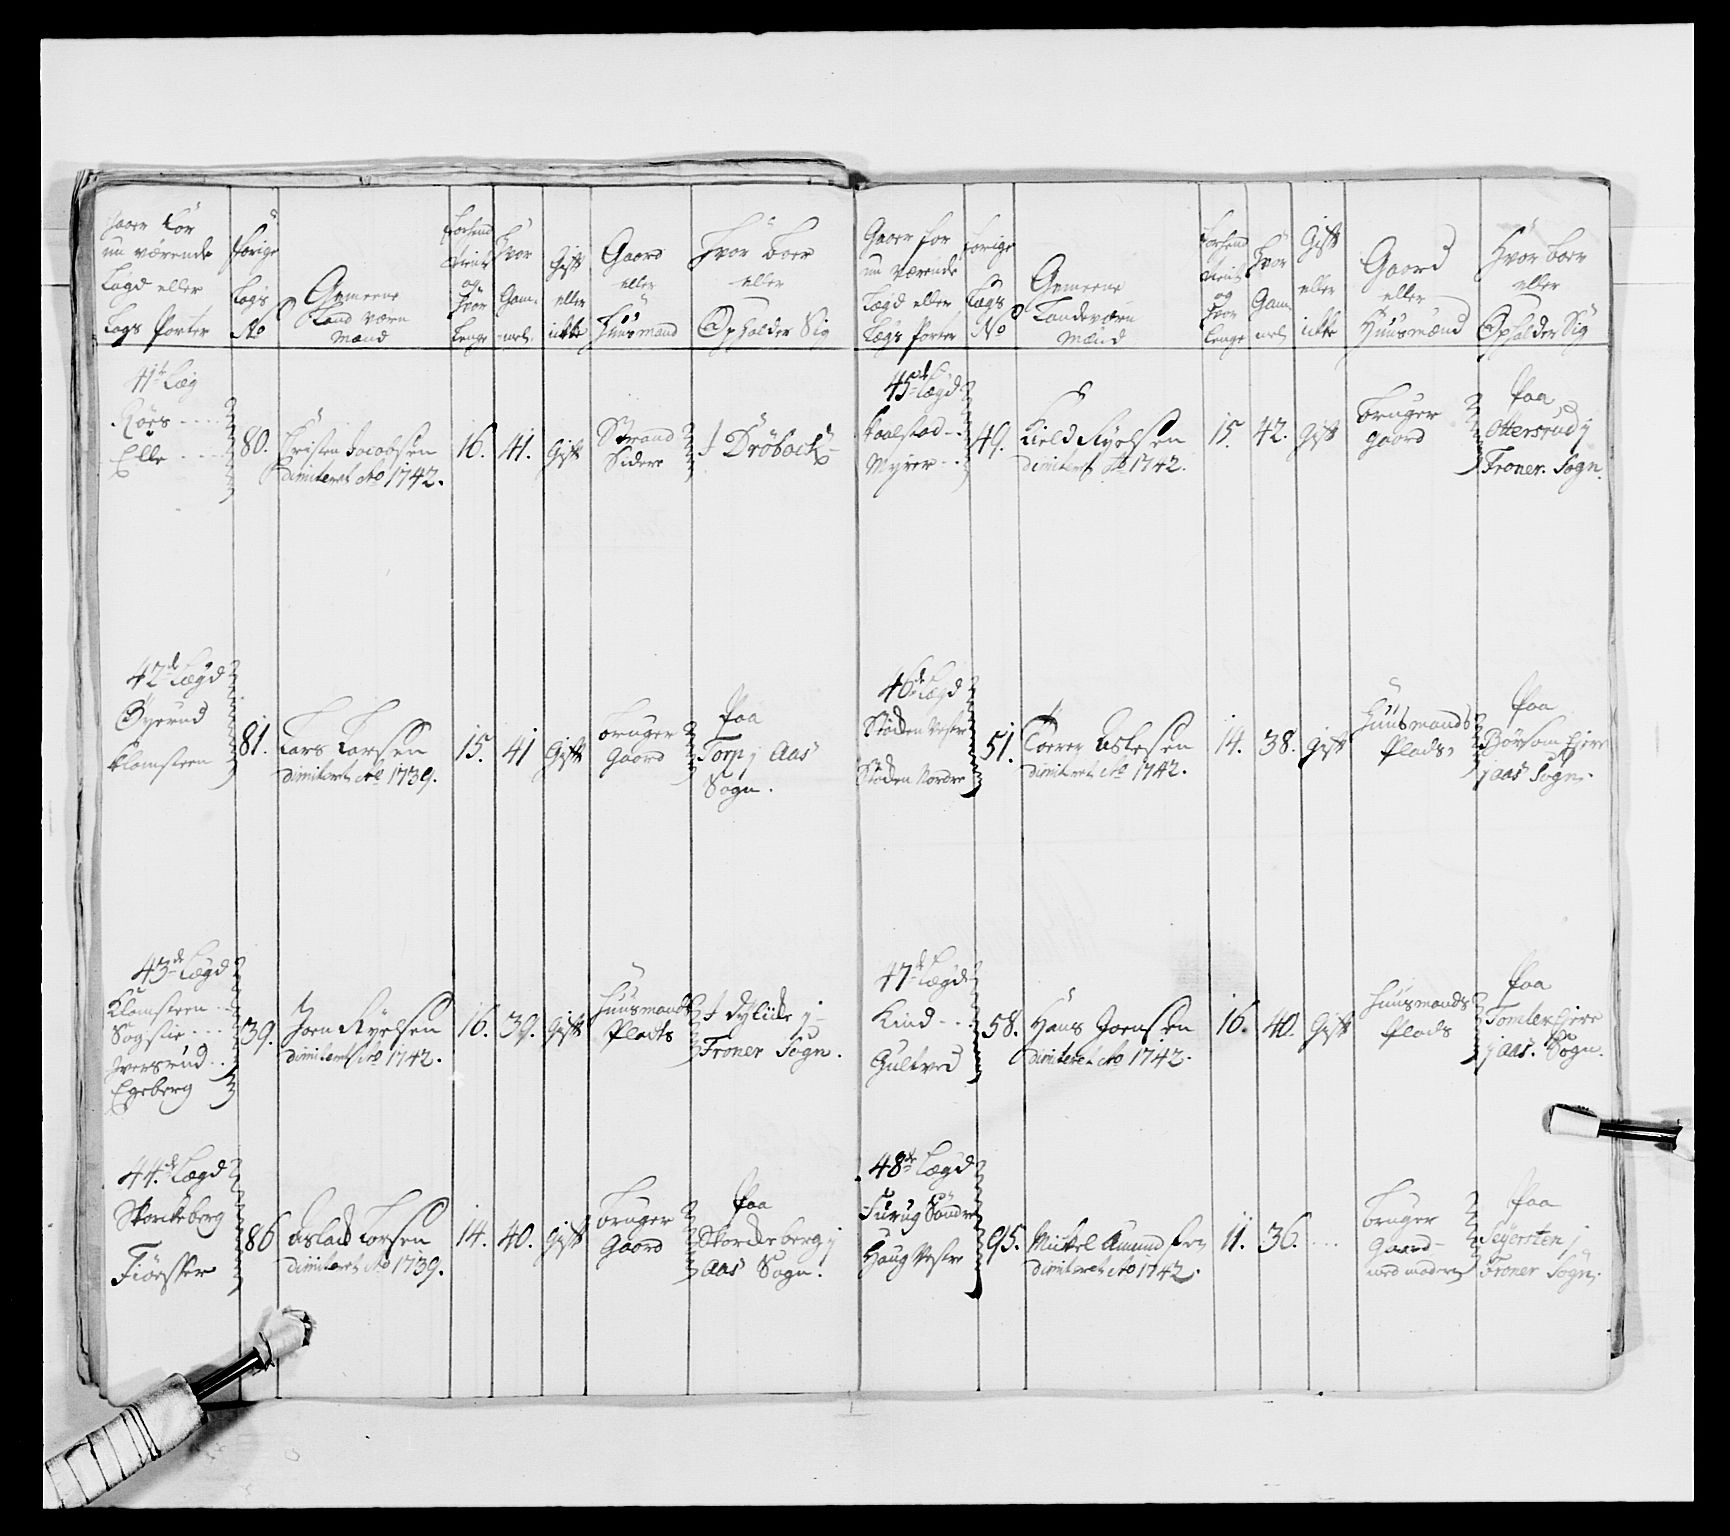 Gaver for
nu værende
Lægd eller
Lægs Parter
forige
Lægs
No
Gemeene
Land værn
Mænd
og
Hvor
lenge
Hvor
Gam-
mel
Gift
eller
ickke
Gaard
eller
Huusmand
Hvor boer
eller
Opholder Sig
41de Læg
Kaes
Elle
80.
Christen Jacobsen
dimiteret Ao 1742.
16.
41.
Gift
Strand
Sidere
I Drøback
42de Lægd
Øyerud
Klomsteen
81.
Lars Larsen
dimiteret Ao 1739.
15.
41
Gift
bruger
Gaard
Paa
Torp j Aas
Sogn.
43de Lægd
Klomsteen
Sogstie
Iversrud
Egeberg
39.
Joen Kyelsen
dimiteret Ao 1742.
16.
39.
Gift
Huusmands
Plads
I j
Froner Sogn.
44de Lægd
Skorkeberg
86
Aslack Larsen
dimiteret Ao 1739.
14.
40.
Gift
bruger
Gaard
Paa
Skorkeberg j
Aas Sogn.
Gaver for
nu værende
Lægd eller
Lægs Parter
forige
Lægs
No
Gemeene
Landeværn
Mænd
og
hvor
lenge
Hvor
Gam-
mel
Gift
eller
ickke
Gaard
eller
Huusmænd
Hvor boer
eller
Opholder Sig
45de Lægd
Kaalstad
Myrer
49.
Kield Kyelsen
dimiteret Ao 1742.
15.
42.
Gift
bruger
gaard
Paa
Ottersrud j
Froner Sogn.
46de Lægd
Støcken Vestre
Støcken Nordre
51.
Torer Aslesen
dimiteret Ao 1742.
14.
38.
Gift
Huusmands
Plads
Paa
j Aas Sogn.
47de Lægd
Kind
Gultved
58.
Hans Joensen
dimiteret Ao 1742.
16.
40.
Gift
Huusmands
Plads
Paa
j Aas Sogn.
48de Lægd
Furug Søndre
Haug Vestre
95.
Mickel Amundsen
dimiteret Ao 1742.
11.
36.
bruger
Gaard
med moderen
Paa
Seyersten j
Froner Sogn.